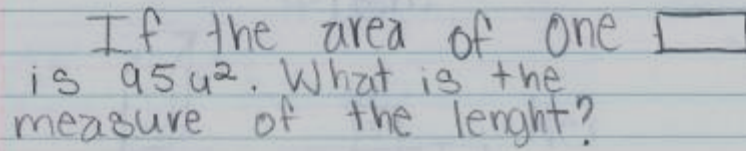 If the area of one
is 95u². What is the
measure of the lenght?